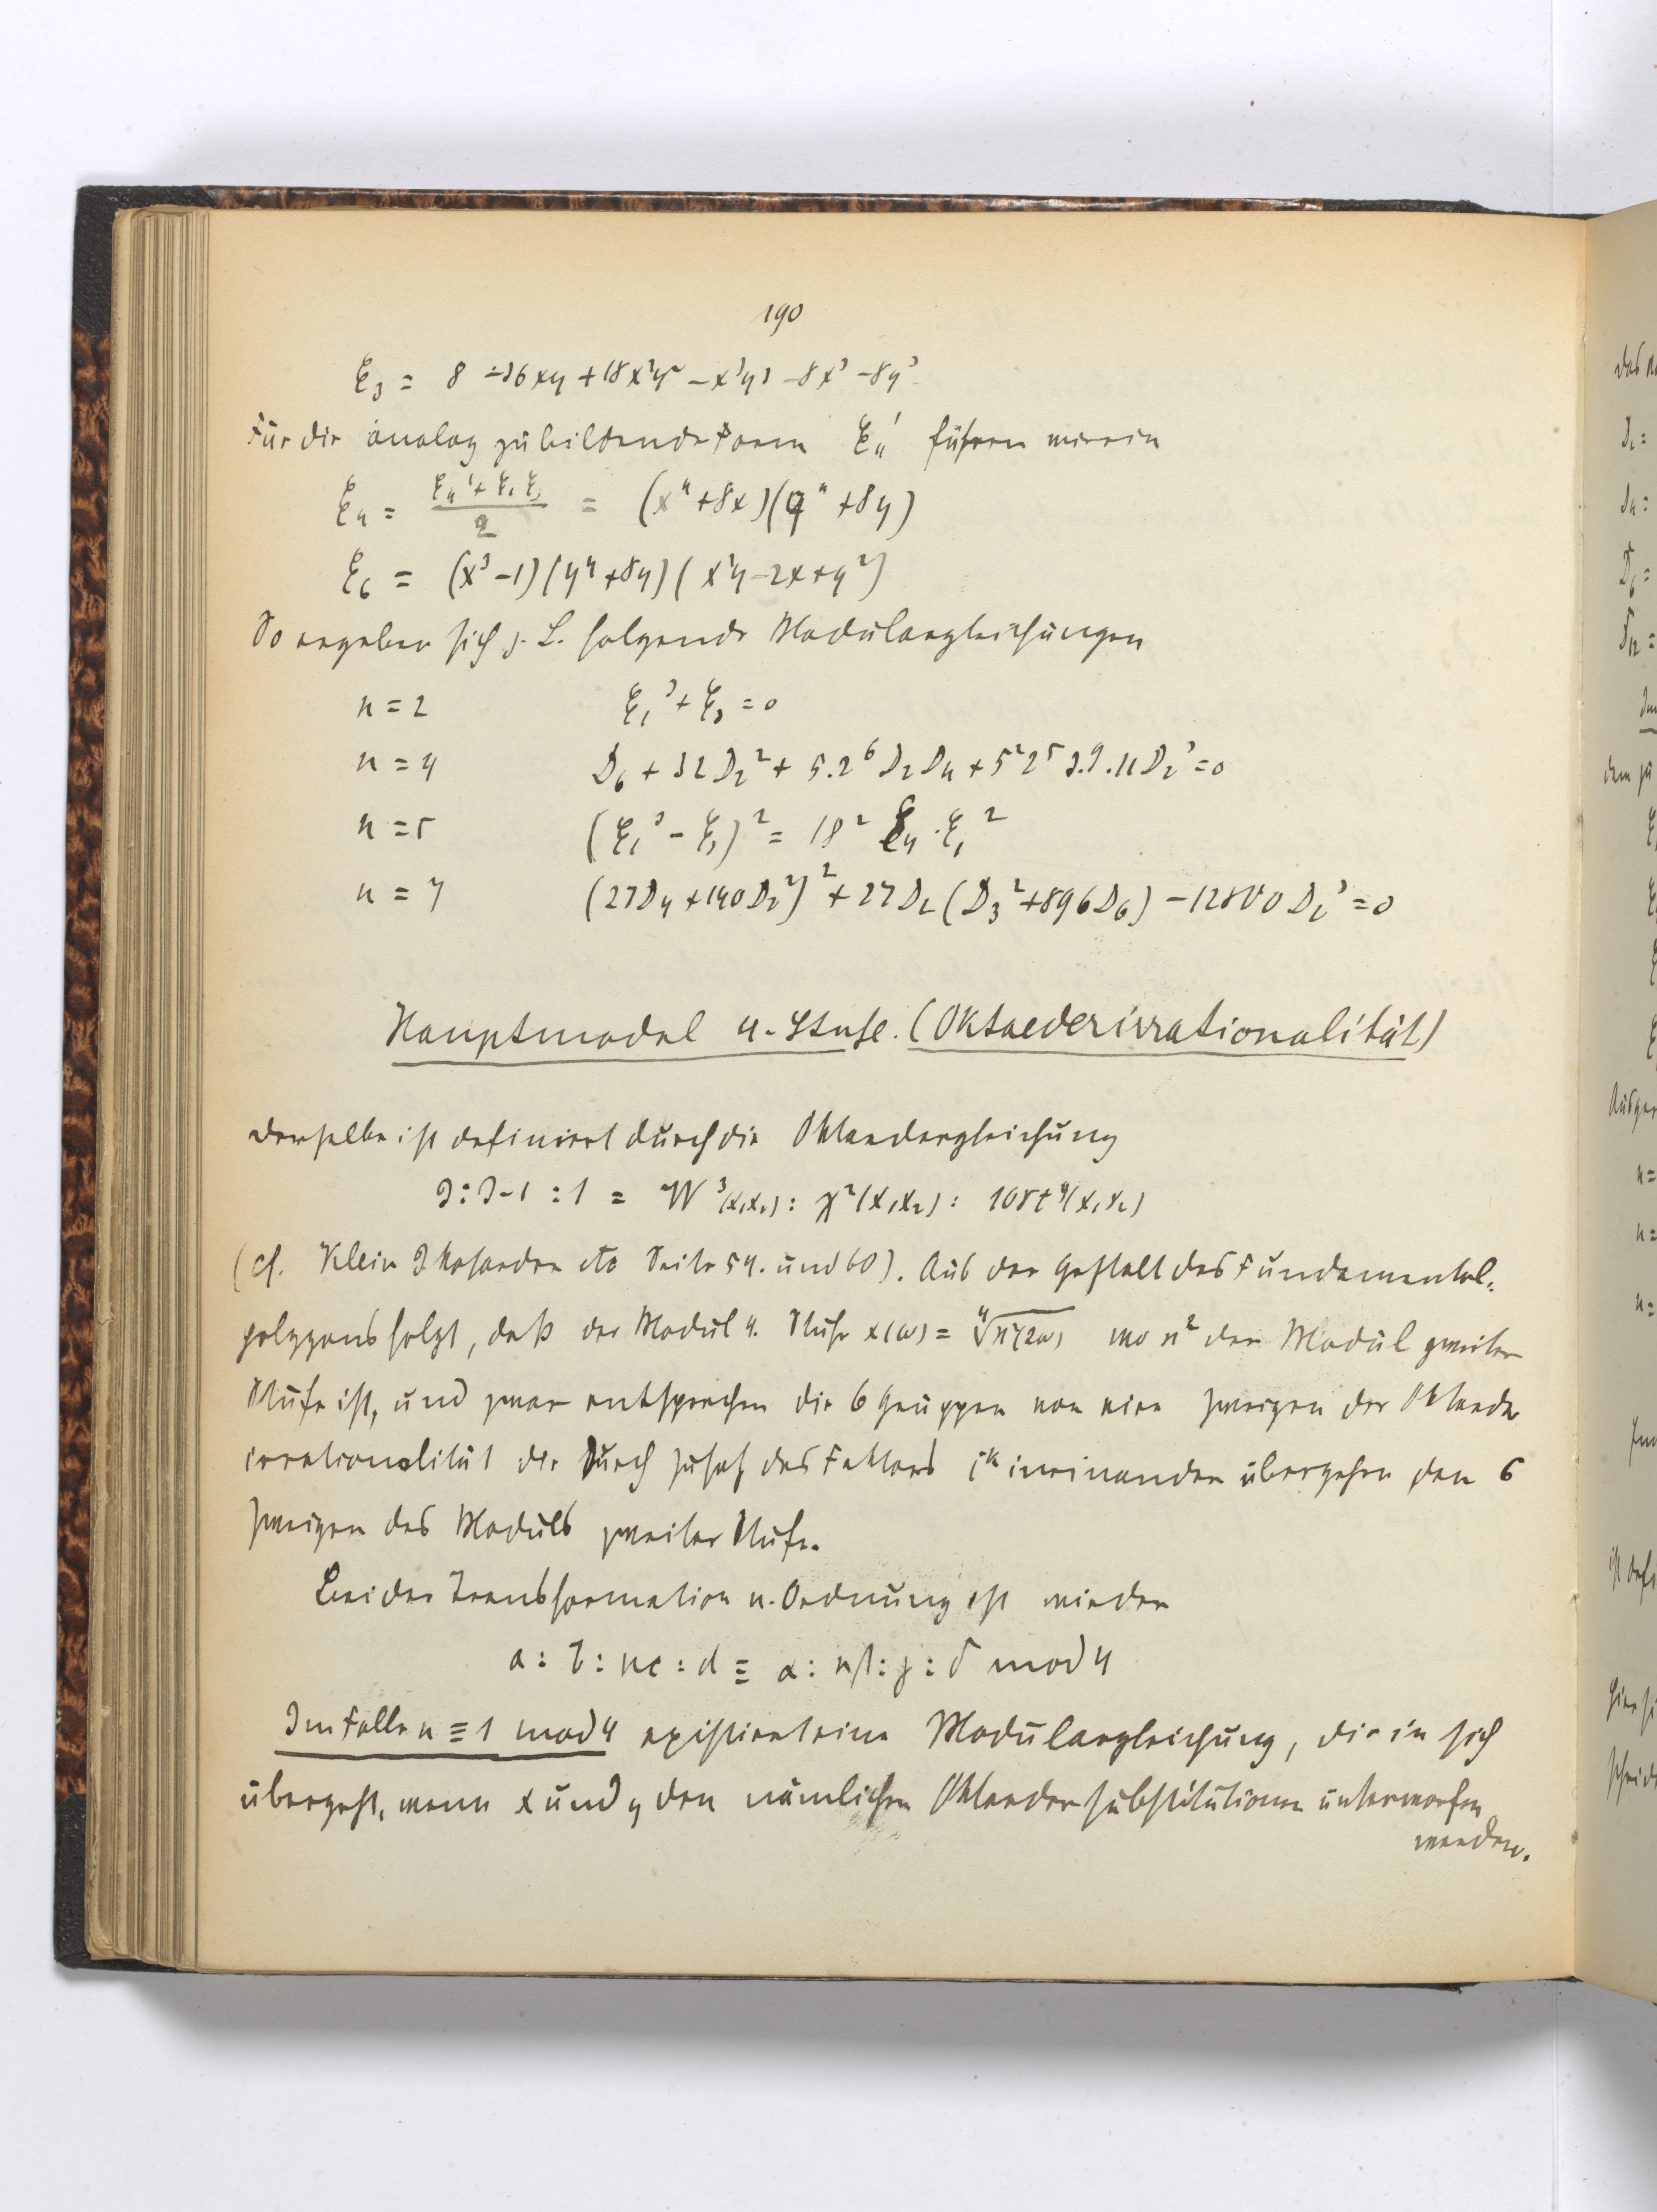 190
ξ₃ = 8 - 36xy + 18x²y² - x³y³ - 8x³ - 8y³
Für die analog zu bildende Form ξ₄' führen wir ein
ξ₄ = (ξ₄' + ξ₁ξ₃)/2 = (x⁴ + 8x)(y⁴ + 8y)
ξ₆ = (x³ - 1)(y⁴ + 8y)(x²y - 2x + y²)
So ergeben sich z. B. folgende Modulargleichungen
n = 2 ξ₁³ + ξ₃ = 0
n = 4 D₆ + 32D₂² + 5.2⁶ D₂D₄ + 5²2⁵ D₂³ = 0
n = 5 (ξ₁³ - ξ₃)² = 18² ξ₄·ξ₁²
n = 7 (27D₄ + 140D₂²)² + 27D₂(D₃² + 896D₆) - 12800D₂³ = 0
Hauptmodul 4. Stufe. (Oktaederirrationalität)
Derselbe ist definiert durch die Oktaedergleichung
J : J-1 : 1 = W³(x₁x₂) : χ²(x₁x₂) : 108t⁴(x₁x₂)
(cf. Klein Ikosaeder etc Seite 54. und 60). Aus der Gestalt des Fundamental-
polygons folgt, daß der Modul 4. Stufe x(ω) = ∜ϰ²(2ω) wo ϰ² der Modul zweiter
Stufe ist, und zwar entsprechen die 6 Gruppen von vier Zweigen der Oktaeder
irrationalität die durch Zusatz des Faktors iᵏ ineinander übergehen den 6
Zweigen des Moduls zweiter Stufe.
Bei der Transformation n. Ordnung ist wieder
a : b : nc : d ≡ α : nβ : γ : δ mod 4
Im Falle n ≡ 1 mod 4 existiert eine Modulargleichung, die in sich
übergeht, wenn x und y den nämlichen Oktaedersubstitutionen unterworfen
werden.